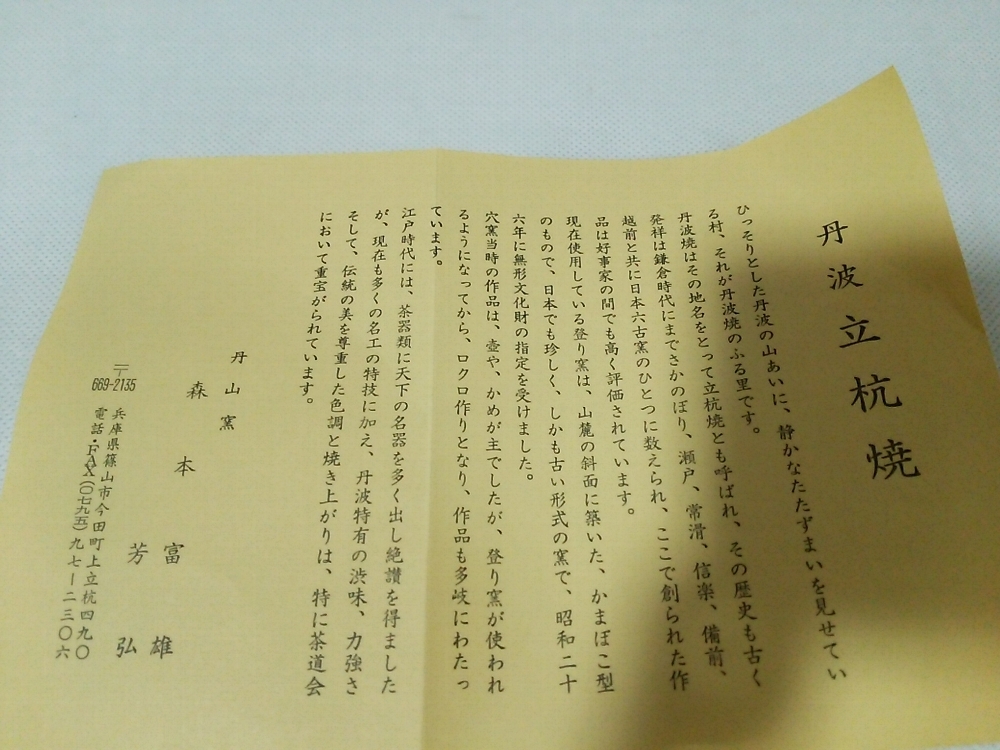 丹波立杭焼
ひっそりとした丹波の山あいに、静かなたたずまいを見せてい
る村、それが丹波焼のふる里です。
丹波焼はその地名をとって立杭焼とも呼ばれ、その歴史も古く
発祥は鎌倉時代にまでさかのぼり、瀬戸、常滑、信楽、備前、
越前と共に日本六古窯のひとつに数えられ、ここで創られた作
品は好事家の間でも高く評価されています。
現在使用している登り窯は、山麓の斜面に築いた、かまぼこ型
のもので、日本でも珍しく、しかも古い形式の窯で、昭和二十
六年に無形文化財の指定を受けました。
穴窯当時の作品は、壺や、かめが主でしたが、登り窯が使われ
るようになってから、ロクロ作りとなり、作品も多岐にわたっ
ています。
江戸時代には、茶器類に天下の名器を多く出し絶讃を得ました
が、現在も多くの名工の特技に加え、丹波特有の渋味、力強さ
そして、伝統の美を尊重した色調と焼き上がりは、特に茶道会
において重宝がられています。
丹山窯
森本 富雄
芳弘
〒669-2135 兵庫県篠山市今田町上立杭四九〇
電話・FAX(〇七九五)九七ー二三〇六